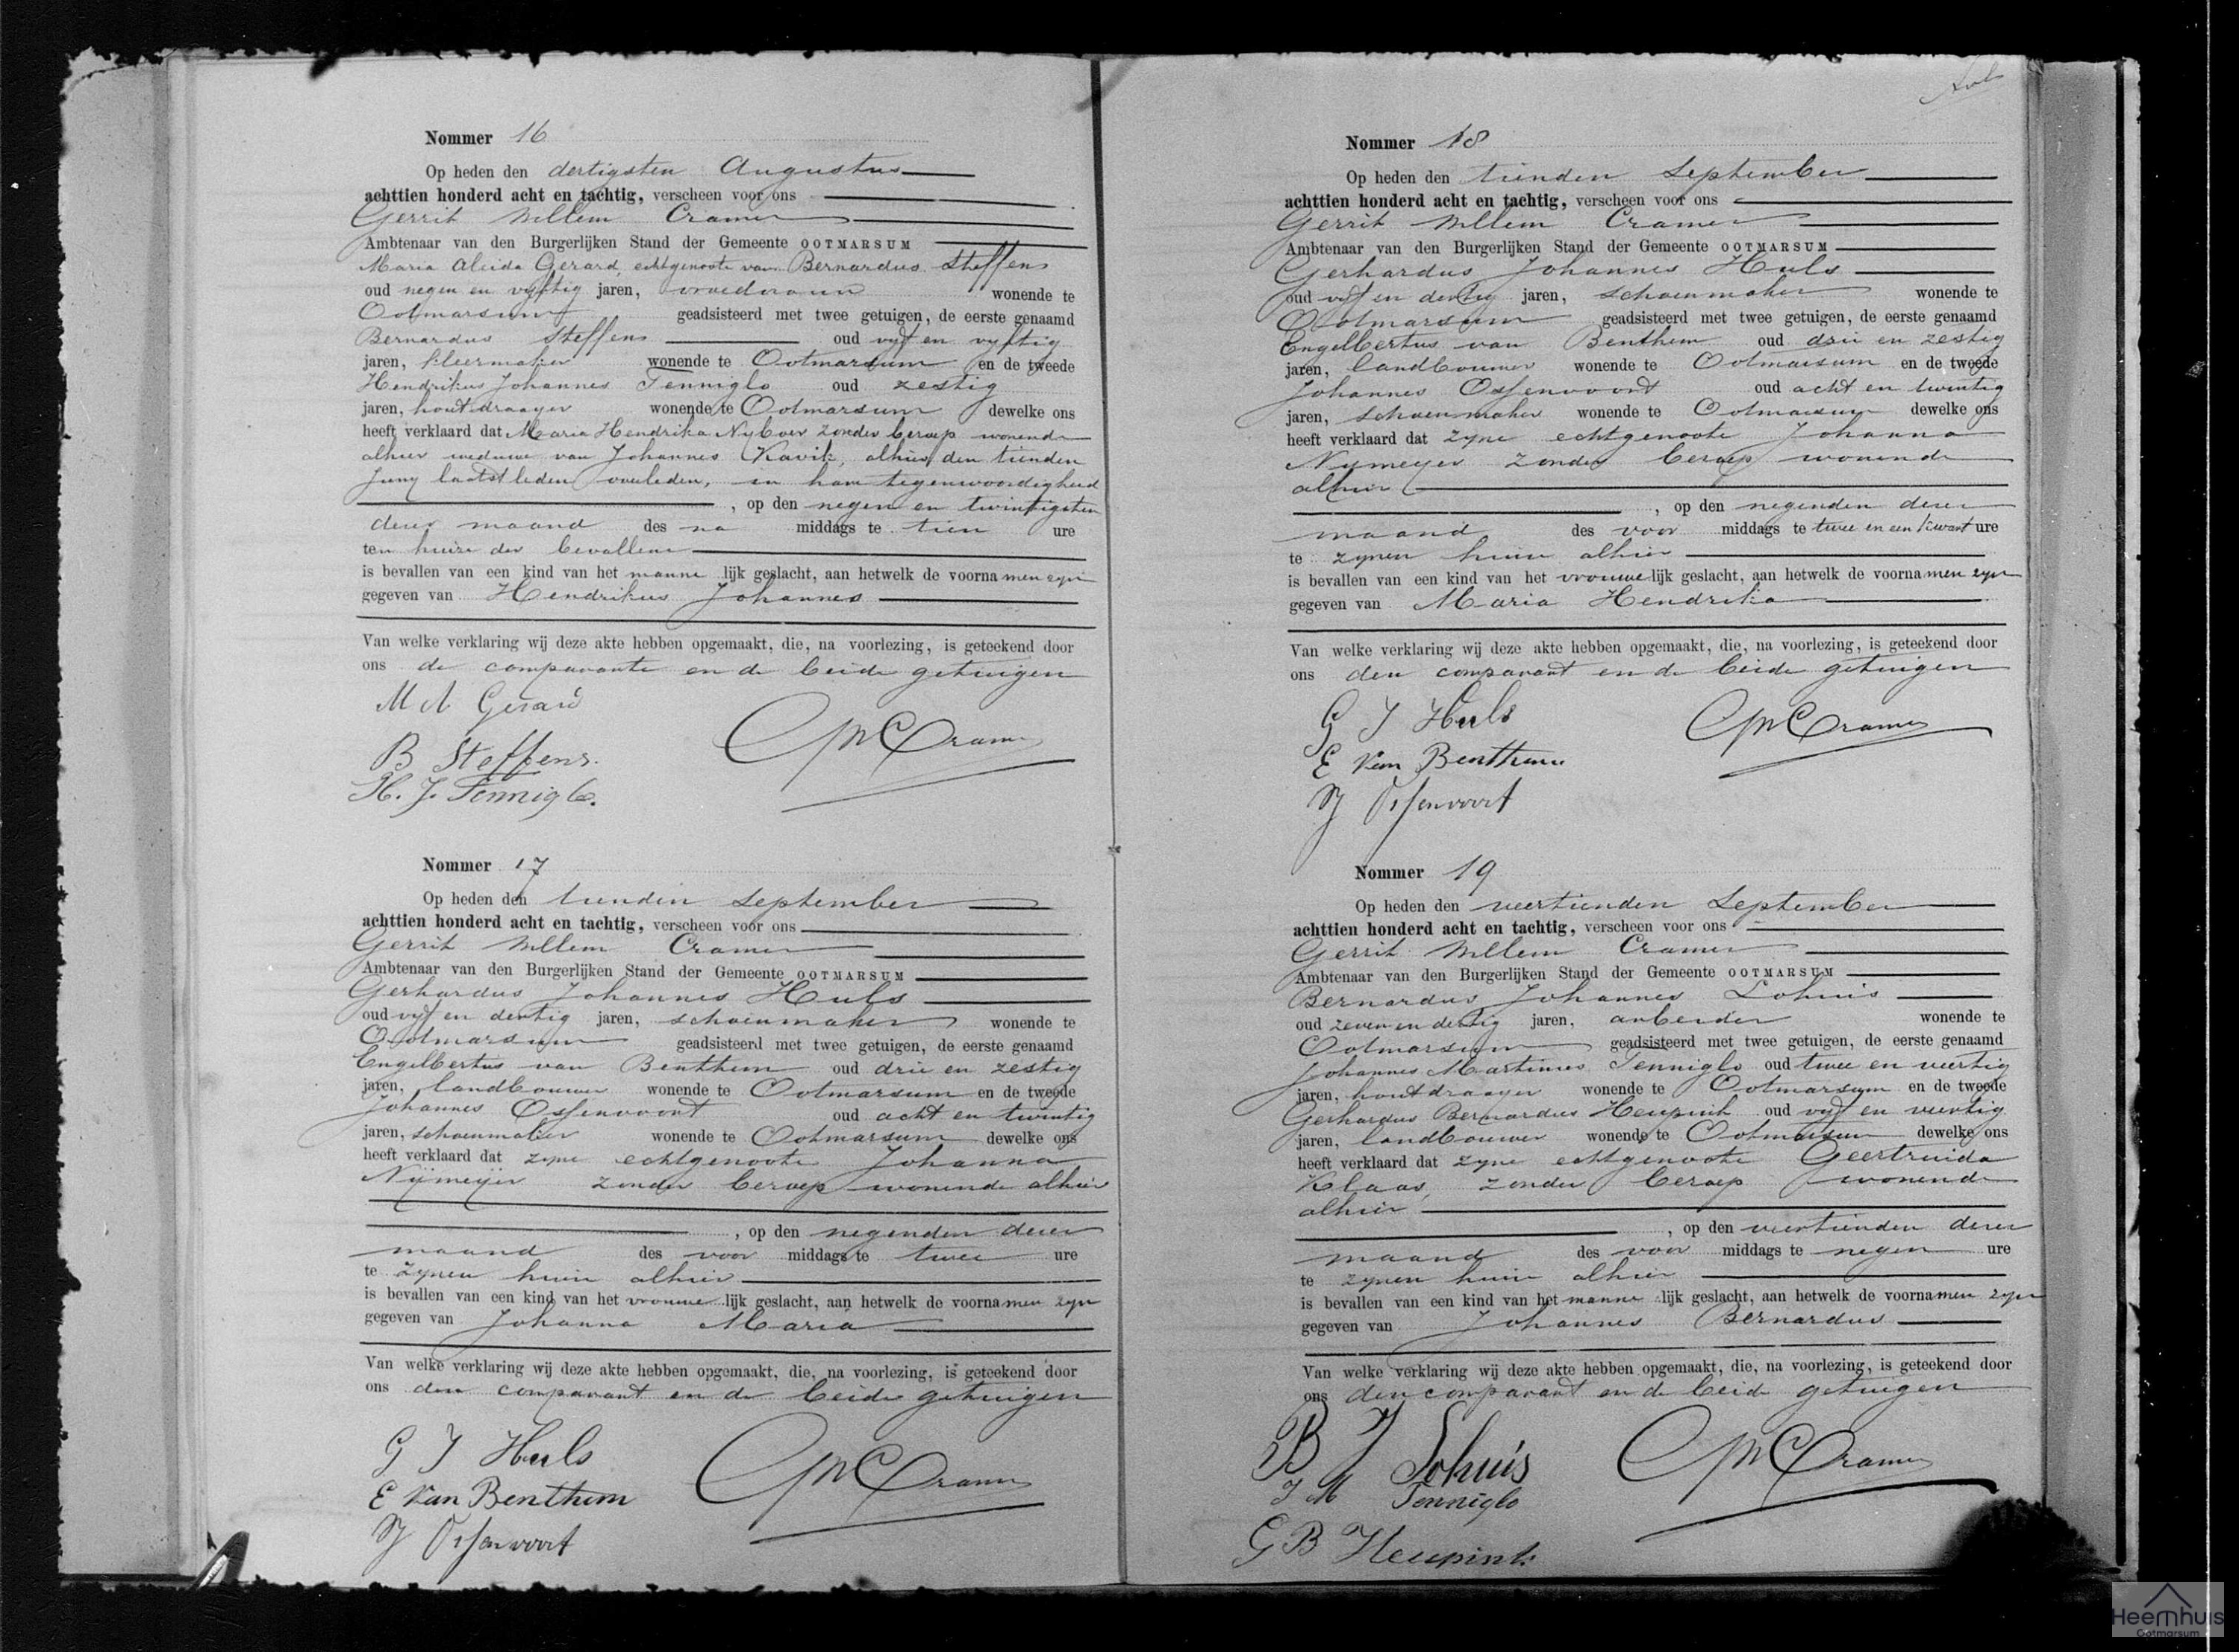 Nommer 16
Op heden den dertigsten Augustus
achttien honderd acht en tachtig, verscheen voor ons
Gerrit Willem Cramer
Ambtenaar van den Burgerlijken Stand der Gemeente OOTMARSUM
Maria Aleida Gerard, echtgenoote van Bernardus Steffens
oud negen en vyftig jaren, vroedvrouw wonende te
Ootmarsum geadsisteerd met twee getuigen, de eerste genaamd
Bernardus Steffens oud vyf en vyftig
jaren, kleermaker wonende te Ootmarsum en de tweede
Hendrikus Johannes Tenniglo oud zestig
jaren, houtdraayer wonende te Ootmarsum dewelke ons
heeft verklaard dat Maria Hendrika Nyboer zonder beroep wonende
alhier weduwe van Johannes Kavik, alhier den tienden
Juny laatstleden overleden, in hare tegenwoordigheid
, op den negen en twintigsten
dezer maand des na middags te tien ure
ten huize der bevallene
is bevallen van een kind van het manne lijk geslacht, aan hetwelk de voornamen zyn
gegeven van Hendrikus Johannes
Van welke verklaring wij deze akte hebben opgemaakt, die, na voorlezing, is geteekend door
ons de comparante en de beide getuigen
M A Gerard
B Steffens.
H. J. Tenniglo.
GWCramer
Nommer 17
Op heden den tienden September
achttien honderd acht en tachtig, verscheen voor ons
Gerrit Willem Cramer
Ambtenaar van den Burgerlijken Stand der Gemeente OOTMARSUM
Gerhardus Johannes Huls
oud vyf en dertig jaren, schoenmaker wonende te
Ootmarsum geadsisteerd met twee getuigen, de eerste genaamd
Engelbertus van Benthem oud drie en zestig
jaren, landbouwer wonende te Ootmarsum en de tweede
Johannes Ossenvoort oud acht en twintig
jaren, schoenmaker wonende te Ootmarsum dewelke ons
heeft verklaard dat zyne echtgenoote Johanna
Nijmeijer zonder beroep wonende alhier
, op den negenden dezer
maand des voor middags te twee ure
te zynen huize alhier
is bevallen van een kind van het vrouwe lijk geslacht, aan hetwelk de voornamen zyn
gegeven van Johanna Maria
Van welke verklaring wij deze akte hebben opgemaakt, die, na voorlezing, is geteekend door
ons den comparant en de beide getuigen
G J Huls
E van Benthem
J Ossenvoort
GWCramer
Nommer 18
Op heden den tienden September
achttien honderd acht en tachtig, verscheen voor ons
Gerrit Willem Cramer
Ambtenaar van den Burgerlijken Stand der Gemeente OOTMARSUM
Gerhardus Johannes Huls
oud vyf en dertig jaren, schoenmaker wonende te
Ootmarsum geadsisteerd met twee getuigen, de eerste genaamd
Engelbertus van Benthem oud drie en zestig
jaren, landbouwer wonende te Ootmarsum en de tweede
Johannes Ossenvoort oud acht en twintig
jaren, schoenmaker wonende te Ootmarsum dewelke ons
heeft verklaard dat zyne echtgenoote Johanna
Nymeyer zonder beroep wonende
alhier
, op den negenden dezer
maand des voor middags te twee en een kwart ure
te zynen huize alhier
is bevallen van een kind van het vrouwe lijk geslacht, aan hetwelk de voornamen zyn
gegeven van Maria Hendrika
Van welke verklaring wij deze akte hebben opgemaakt, die, na voorlezing, is geteekend door
ons den comparant en de beide getuigen
G J Huls
E van Benthem
J Ossenvoort
GWCramer
Nommer 19
Op heden den veertienden September
achttien honderd acht en tachtig, verscheen voor ons
Gerrit Willem Cramer
Ambtenaar van den Burgerlijken Stand der Gemeente OOTMARSUM
Bernardus Johannes Lohuis
oud zeven en dertig jaren, arbeider wonende te
Ootmarsum geadsisteerd met twee getuigen, de eerste genaamd
Johannes Martinus Tenniglo oud twee en veertig
jaren, houtdraayer wonende te Ootmarsum en de tweede
Gerhardus Bernardus Heupink oud vyf en veertig
jaren, landbouwer wonende te Ootmarsum dewelke ons
heeft verklaard dat zyne echtgenoote Geertruida
Klaas, zonder beroep wonende
alhier
, op den veertienden dezer
maand des voor middags te negen ure
te zynen huize alhier
is bevallen van een kind van het manne lijk geslacht, aan hetwelk de voornamen zyn
gegeven van Johannes Bernardus
Van welke verklaring wij deze akte hebben opgemaakt, die, na voorlezing, is geteekend door
ons den comparant en de beide getuigen
B J Lohuis
J M Tenniglo
G B Heupink
GWCramer
Heemhuis
Ootmarsum